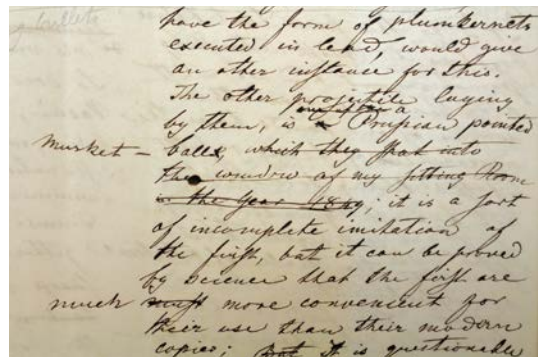 bullets
have the form of plumkernets
executed in lead, would give
an other instance for this.
The other projectile laying
by them, is a Prussian pointed
Musket – balls, which they shat into
the window of my sitting Room
in the year 1849; it is a sort
of incomplete imitation of
the first, but it can be proved
by science that the first are
much must more convenient for
their use than their modern
copies; but it is questionable